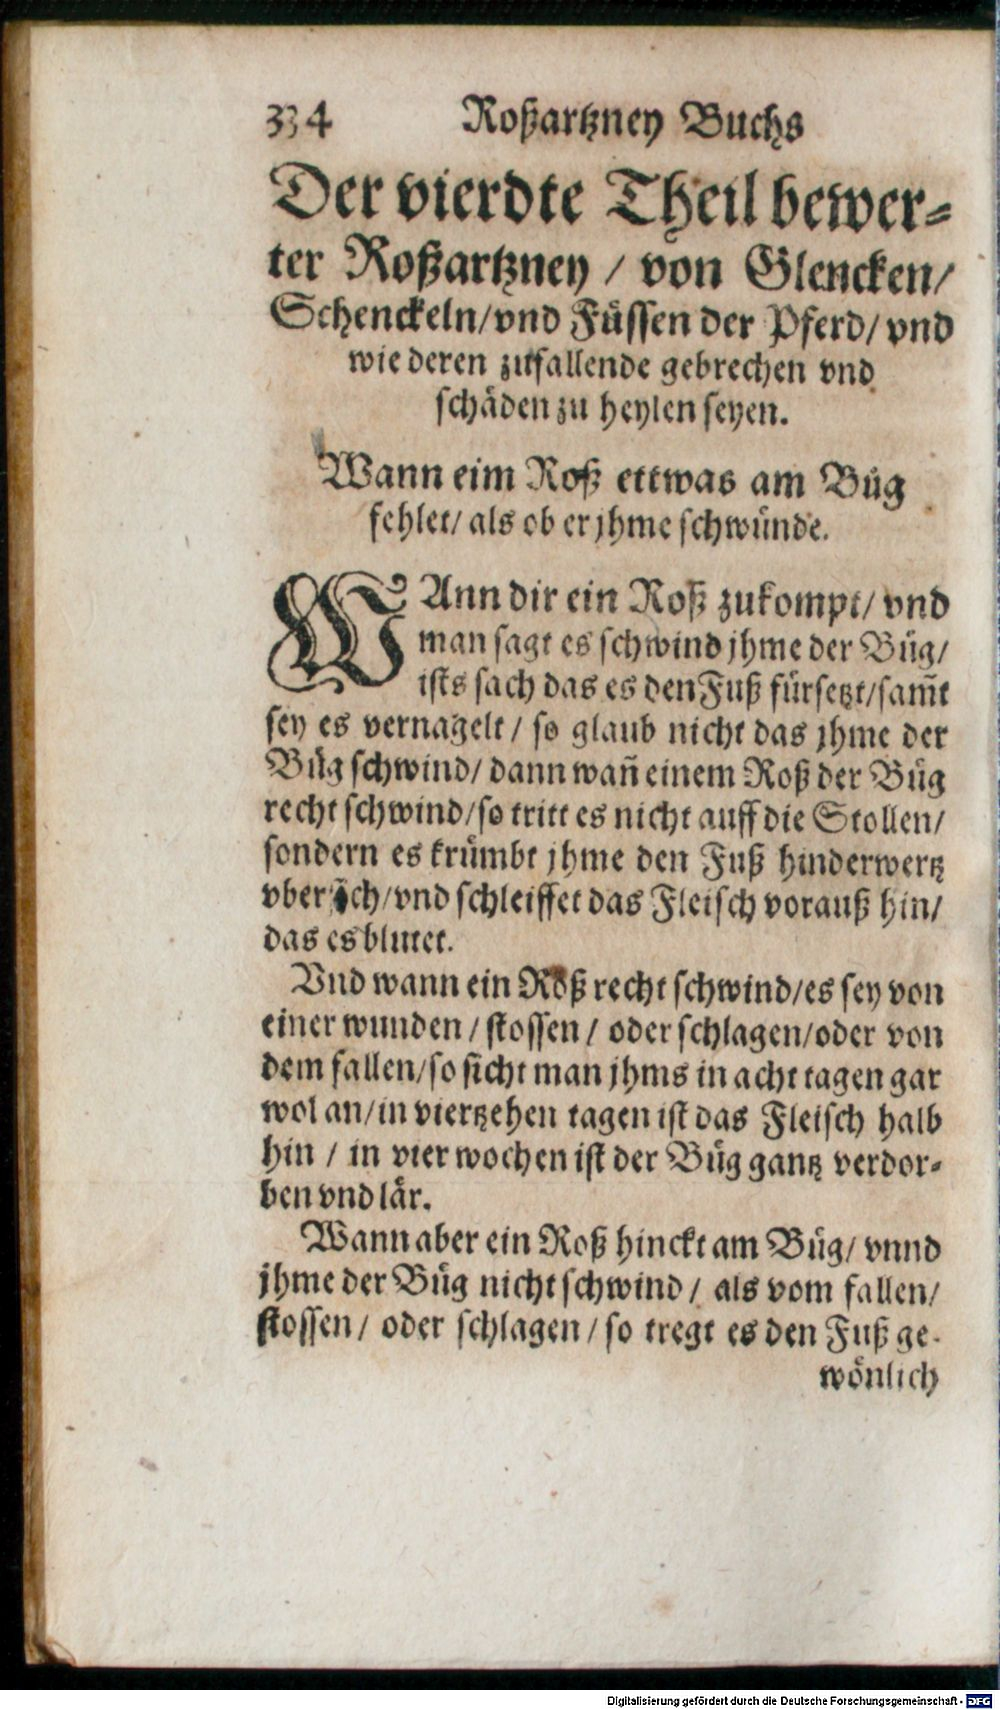 334 Roßartzney Buchs
Der vierdte Theil bewer⸗
ter Roßartzney / von Glencken/
Schenckeln/vnd Fuͤssen der Pferd/ vnd
wie deren zufallende gebrechen vnd
schaͤden zu heylen seyen.
Wann eim Roß ettwas am Buͤg
fehlet/ als ob er jhme schwuͤnde.
WAnn dir ein Roß zukompt/ vnd
man sagt es schwind jhme der Buͤg/
ists sach das es den Fuß fuͤrsetzt/sam̃t
sey es vernagelt / so glaub nicht das jhme der
Buͤg schwind/ dann wañ einem Roß der Buͤg
recht schwind/so tritt es nicht auff die Stollen/
sondern es kruͤmbt jhme den Fuß hinderwertz
vber sich/vnd schleiffet das Fleisch vorauß hin/
das es blutet.
Vnd wann ein Roß recht schwind/es sey von
einer wunden / stossen / oder schlagen/oder von
dem fallen/so sicht man jhms in acht tagen gar
wol an/in viertzehen tagen ist das Fleisch halb
hin / in vier wochen ist der Buͤg gantz verdor⸗
ben vnd laͤr.
Wann aber ein Roß hinckt am Buͤg/ vnnd
jhme der Buͤg nicht schwind / als vom fallen/
stossen / oder schlagen / so tregt es den Fuß ge⸗
woͤnlich
Digitalisierung gefördert durch die Deutsche Forschungsgemeinschaft - DFG